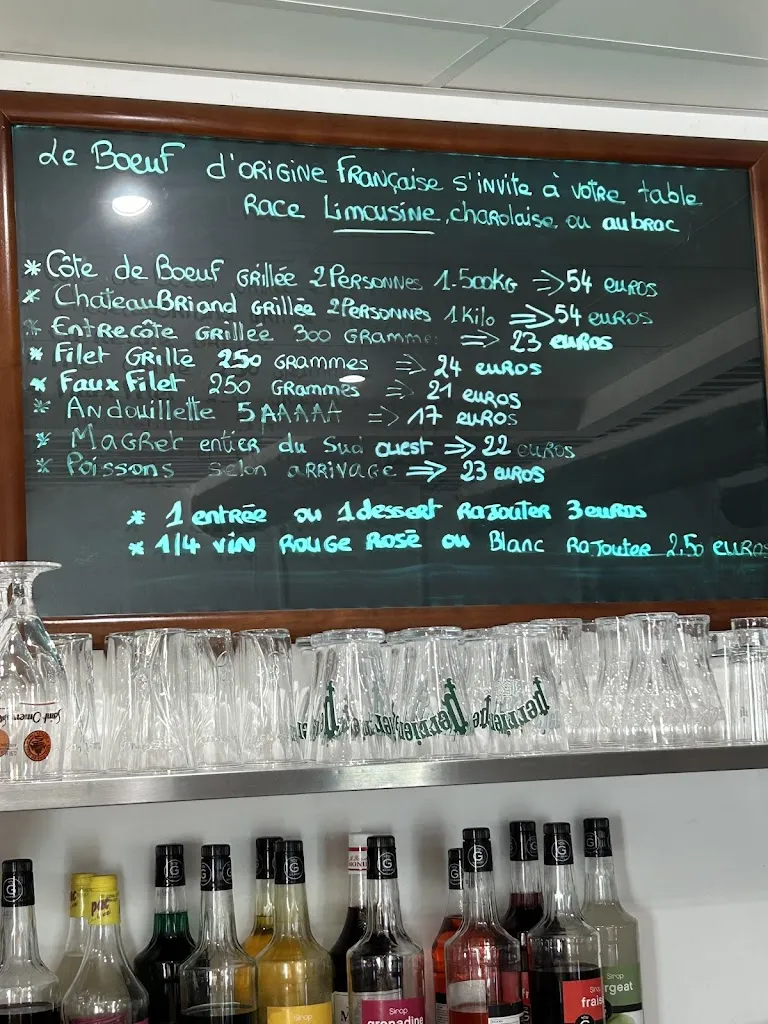 Le Boeuf d'origine Française s'invite à votre table
Race Limousine, charolaise ou aubrac
* Côte de Boeuf Grillée 2 Personnes 1.500KG => 54 euros
* ChateauBriand Grillée 2 Personnes 1 Kilo => 54 euros
* Entrecôte Grillée 300 Grammes => 23 euros
* Filet Grillé 250 Grammes => 24 euros
* Faux Filet 250 Grammes => 21 euros
* Andouillette 5 AAAAA => 17 euros
* Magret entier du Sud ouest => 22 euros
* Poissons selon arrivage => 23 euros
* 1 entrée ou 1 dessert Rajouter 3 euros
* 1/4 vin Rouge Rosé ou Blanc Rajouter 2,50 euros
Saint Omer
perrier
perrier
perrier
Sirop
grenadine
Sirop
Sirop
frais
Sirop
rgeat